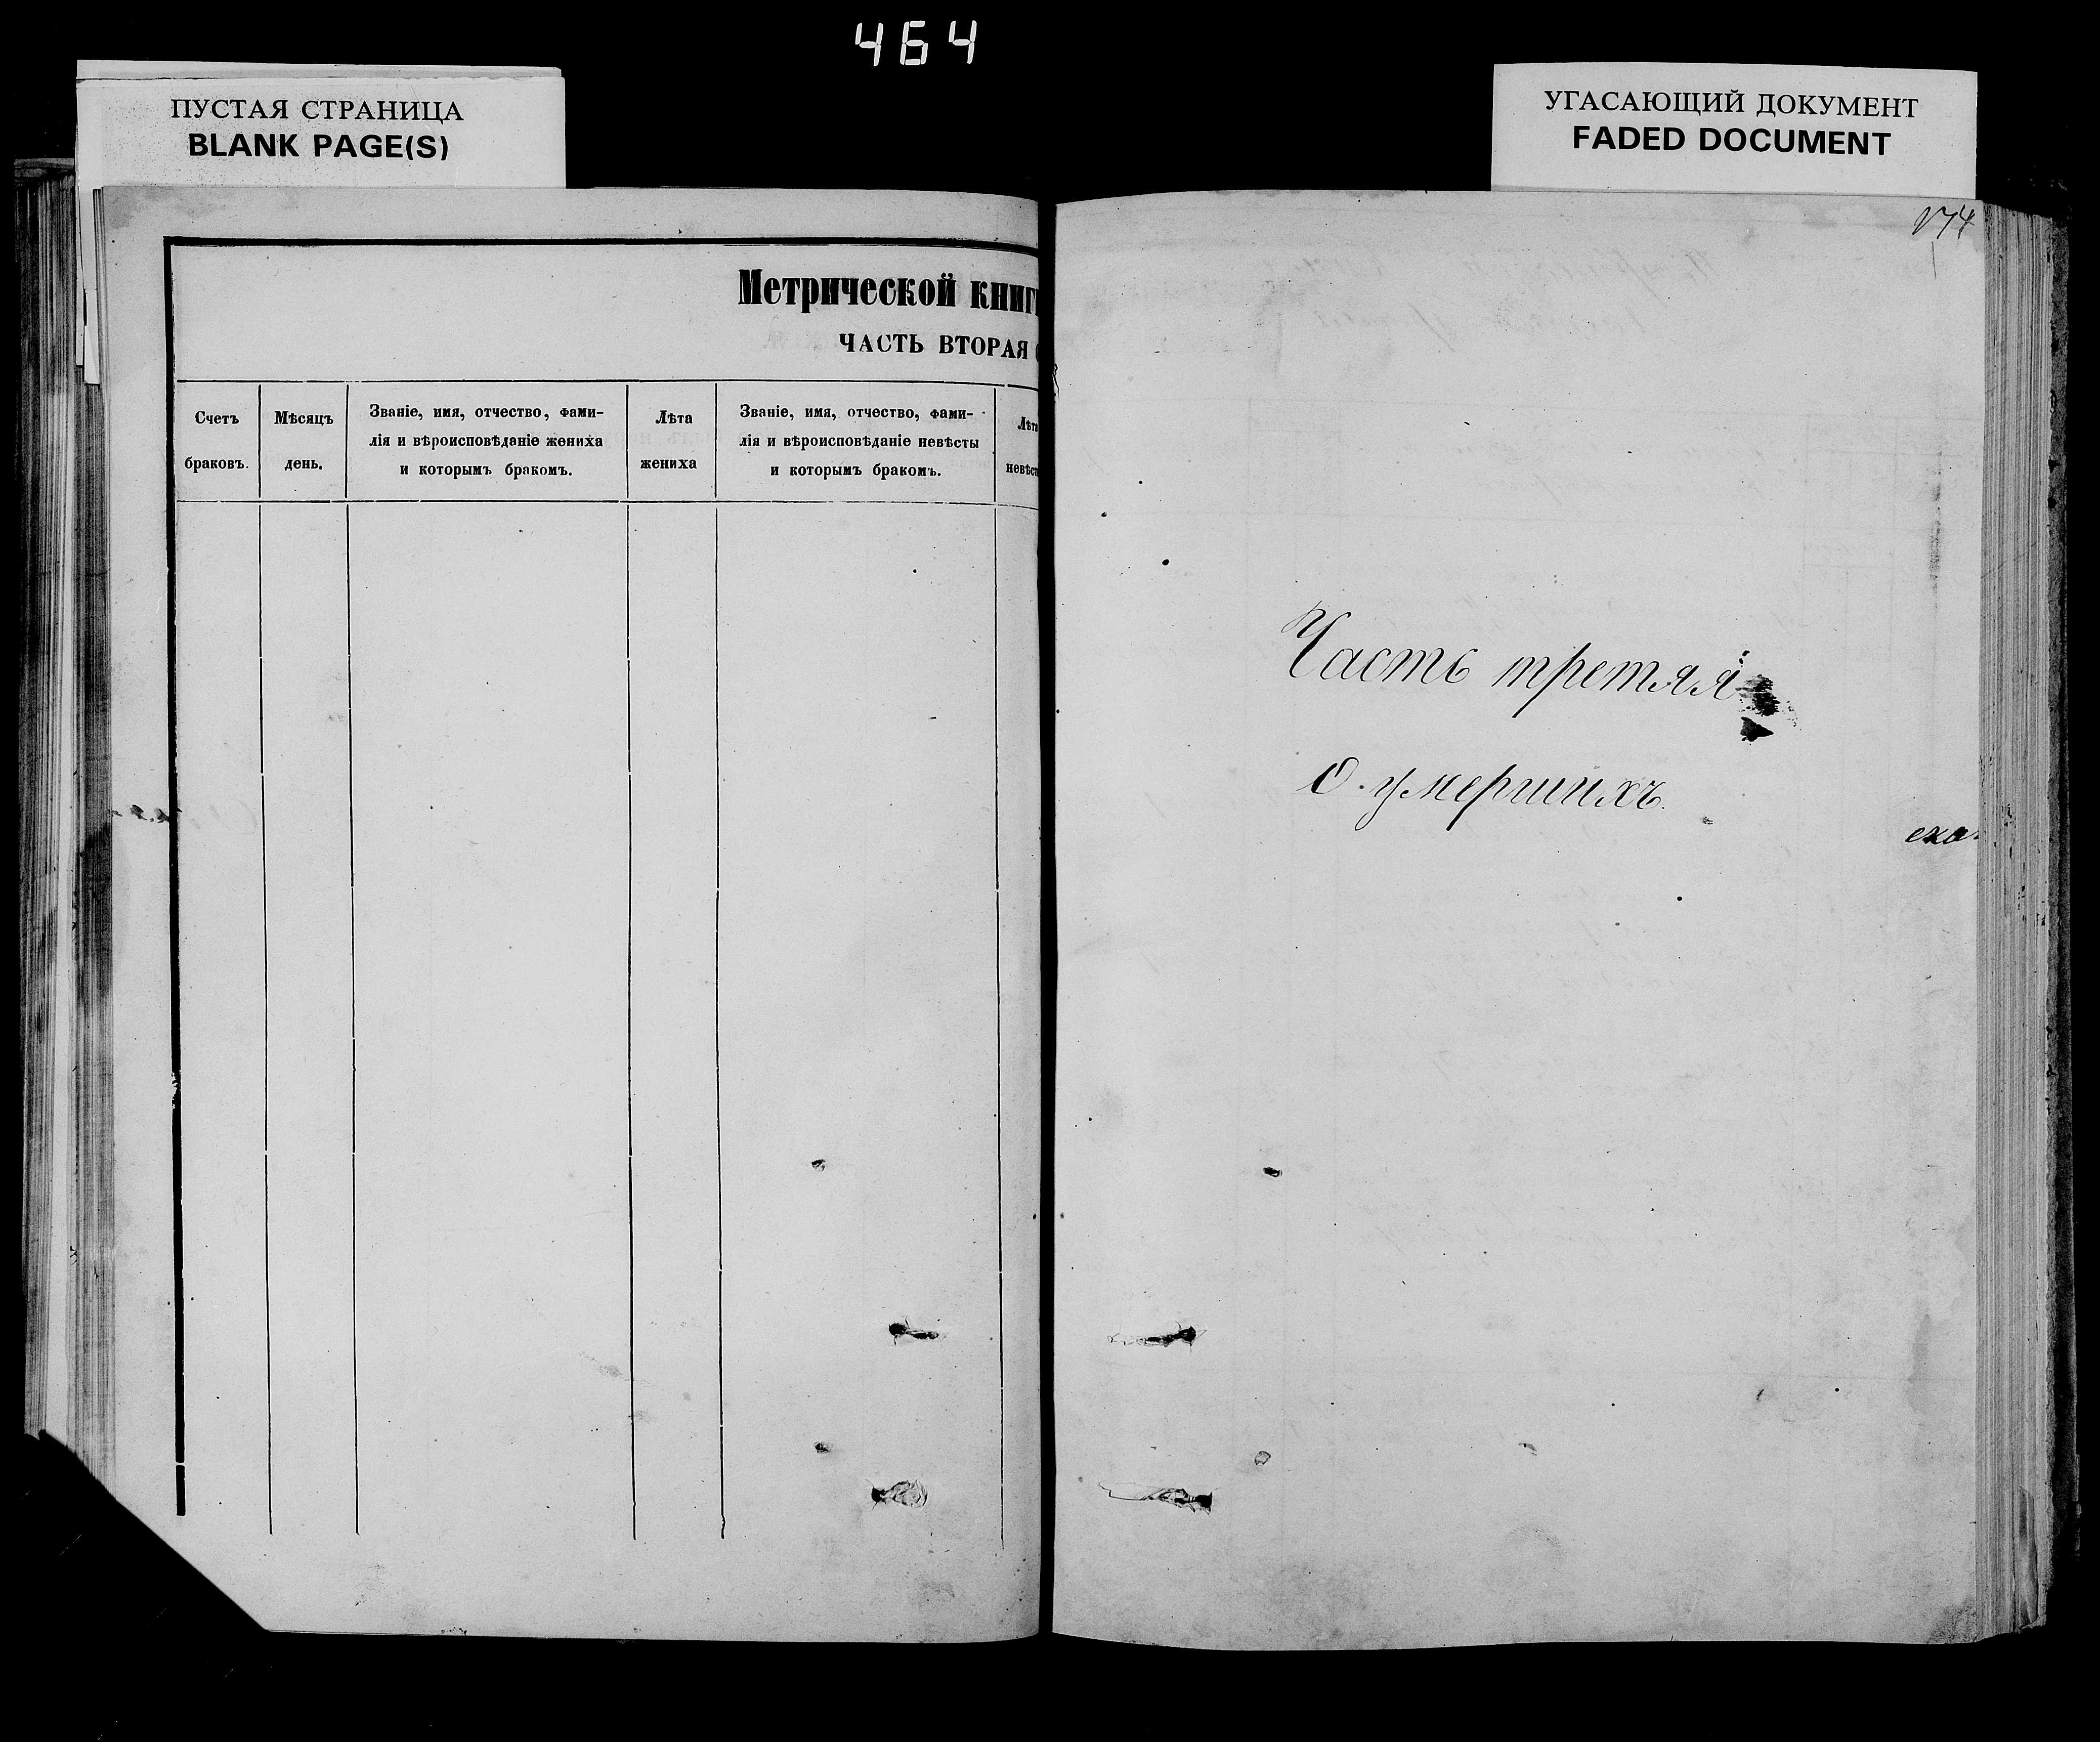 464
ПУСТАЯ СТРАНИЦА
BLANK PAGE(S)
УГАСАЮЩИЙ ДОКУМЕНТ
FADED DOCUMENT
Метрической книг
ЧАСТЬ ВТОРАЯ
Счетъ
браковъ.
Мѣсяцъ
день.
Званіе, имя, отчество, фами-
лія и вѣроисповѣданіе жениха
и которымъ бракомъ.
Лѣта
жениха
Званіе, имя, отчество, фами-
лія и вѣроисповѣданіе невѣсты
и которымъ бракомъ.
Лѣта
невѣс
174
Часть третяя
О умершихъ.